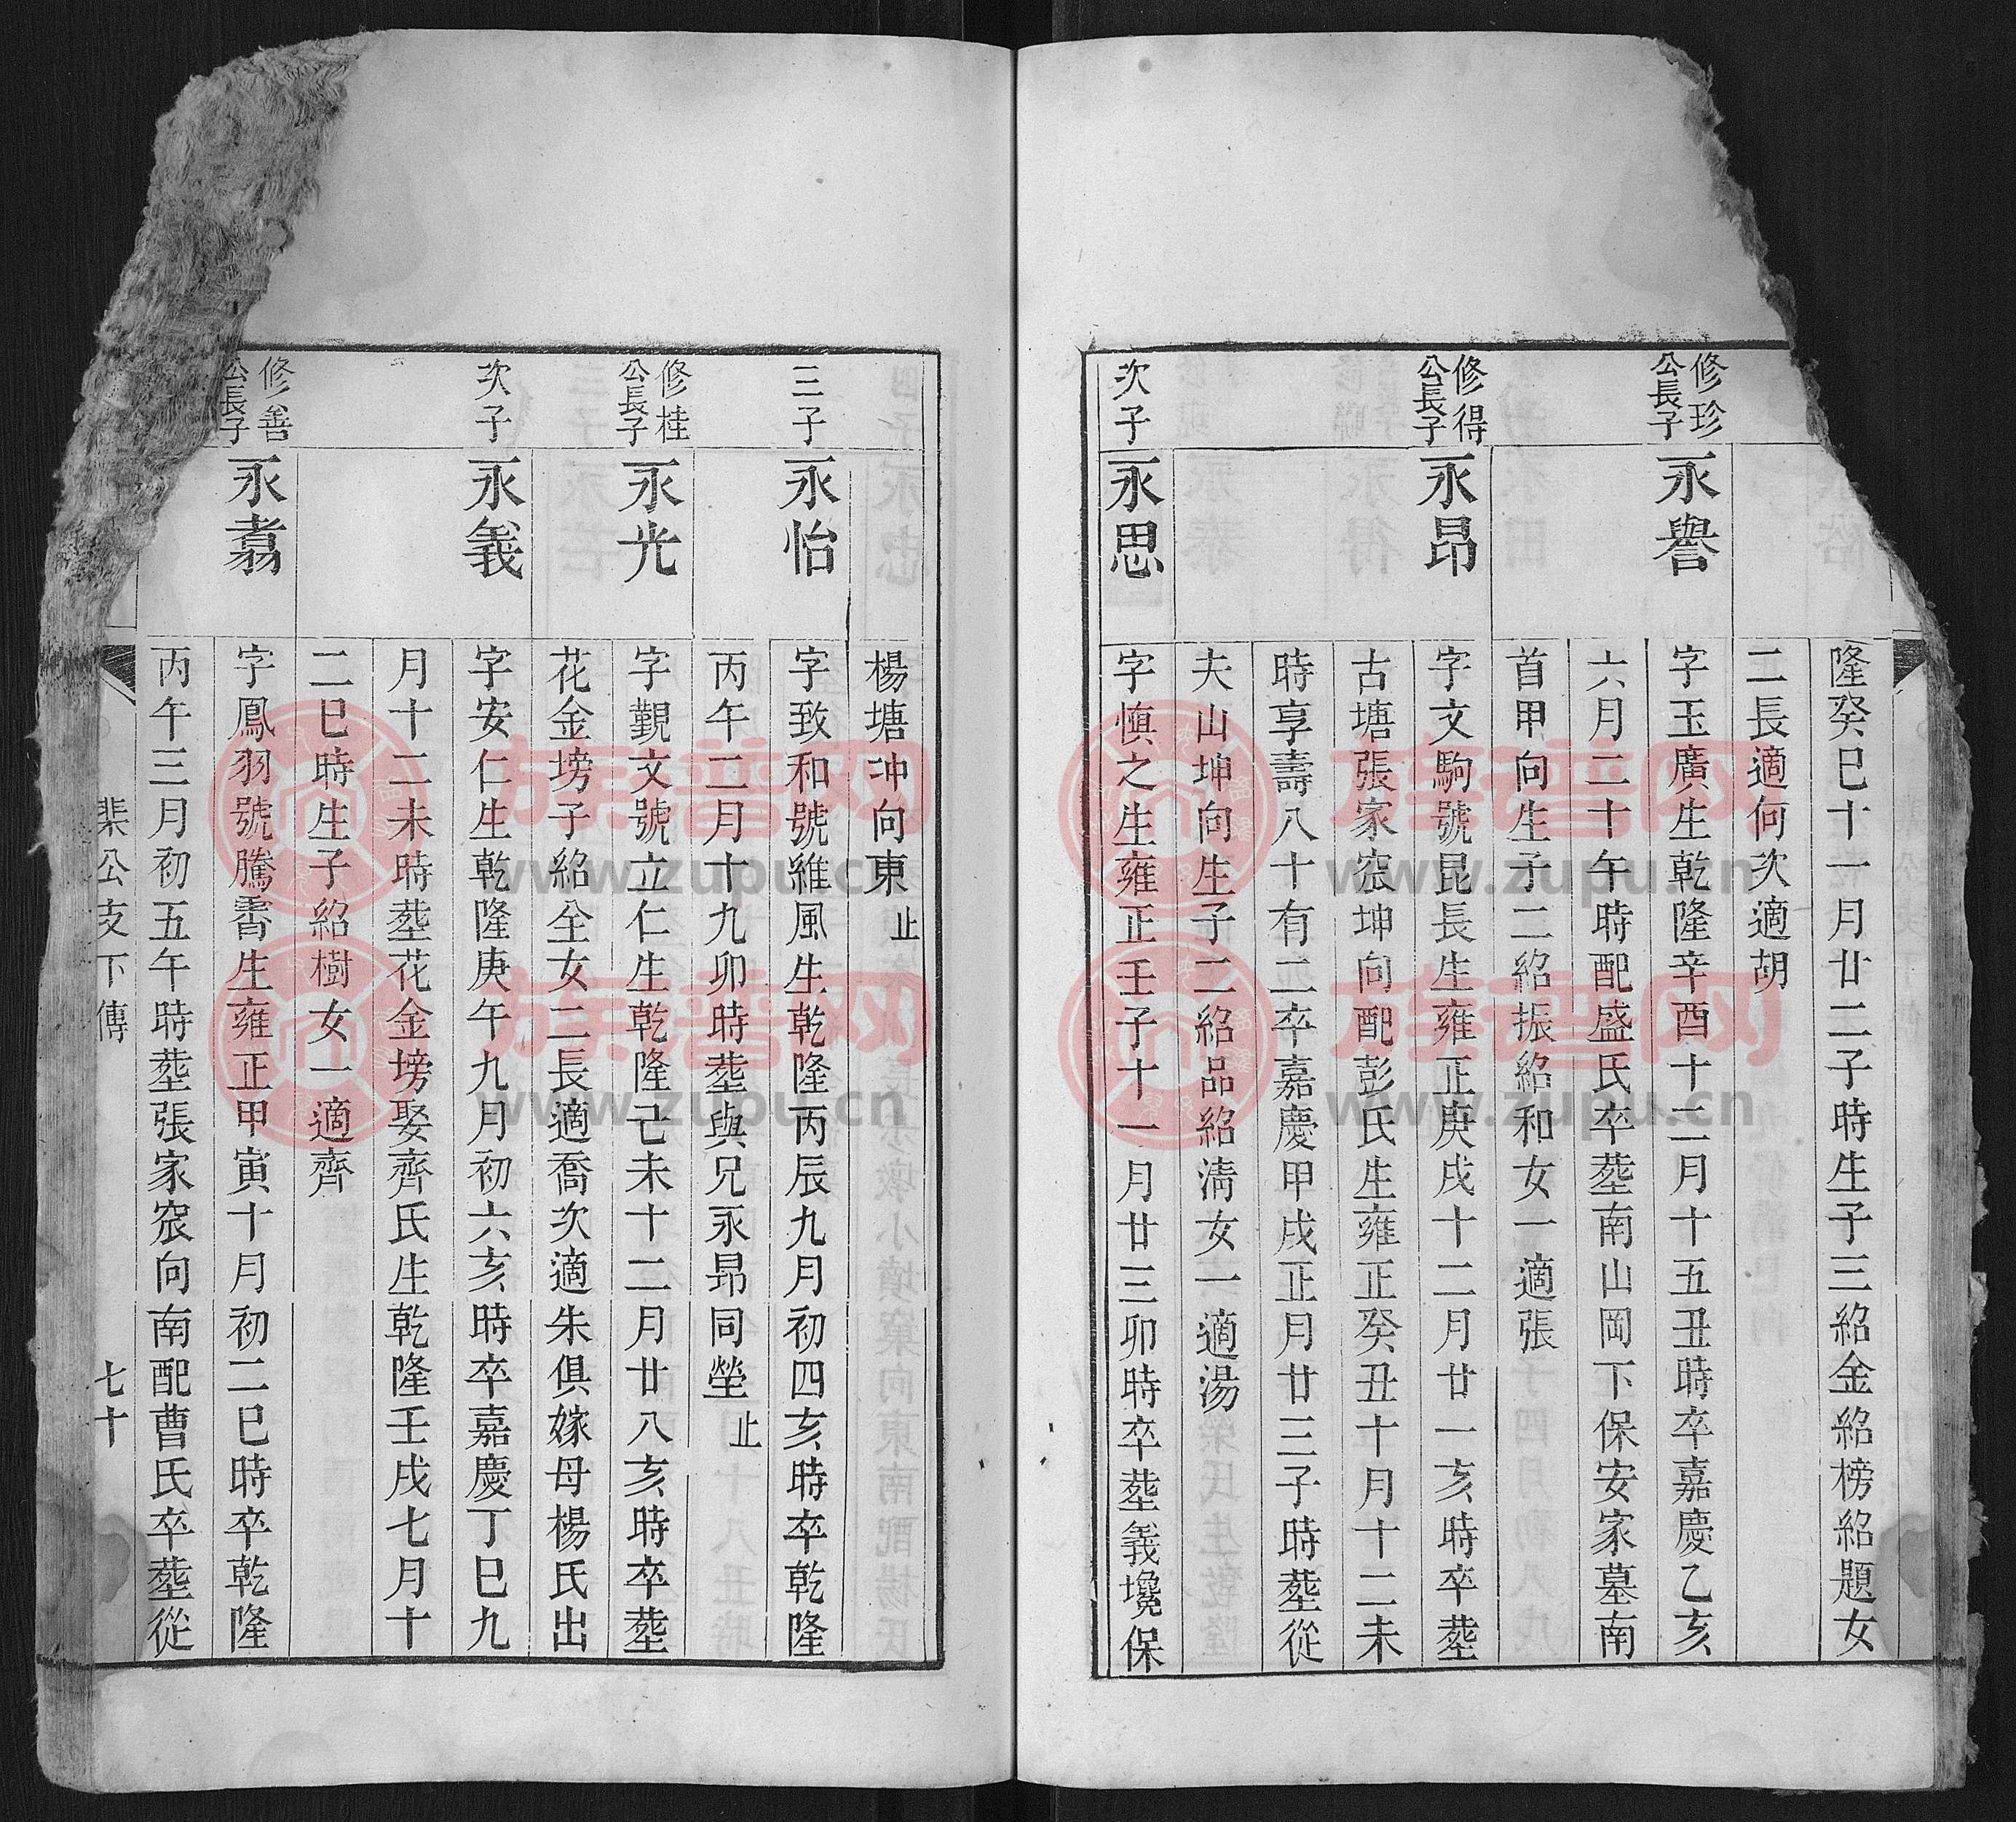 隆癸巳十一月廿二子時生子三紹金紹榜紹題女
二長適何次適胡
修珍公長子
永譽
字玉廣生乾隆辛酉十二月十五丑時卒嘉慶乙亥
六月二十午時配盛氏卒塟南山岡下保安家墓南
首甲向生子二紹振紹和女一適張
修得公長子
永昂
字文駒號昆長生雍正庚戌十二月廿一亥時卒塟
古塘張家䆲坤向配彭氏生雍正癸丑十月十二未
時享壽八十有二卒嘉慶甲戌正月廿三子時塟從
夫山坤向生子二紹品紹淸女一適湯
次子
永思
字慎之生雍正壬子十一月廿三卯時卒塟義墝保
楊塘冲向東止
三子
永怡
字致和號維風生乾隆丙辰九月初四亥時卒乾隆
丙午二月十九卯時塟與兄永昻同塋止
修桂公長子
永光
字觀文號立仁生乾隆己未十二月廿八亥時卒塟
花金塝子紹全女二長適喬次適朱俱嫁母楊氏出
次子
永義
字安仁生乾隆庚午九月初六亥時卒嘉慶丁巳九
月十二未時塟花金塝娶齊氏生乾隆壬戌七月十
二巳時生子紹樹女一適齊
修善公長子
永翥
字鳳羽號騰霄生雍正甲寅十月初二巳時卒乾隆
丙午三月初五午時塟張家䆲向南配曹氏卒塟從
棐公支下傳
七十
族譜网
www.zupu.cn
族譜网
www.zupu.cn
族譜网
www.zupu.cn
族譜网
www.zupu.cn